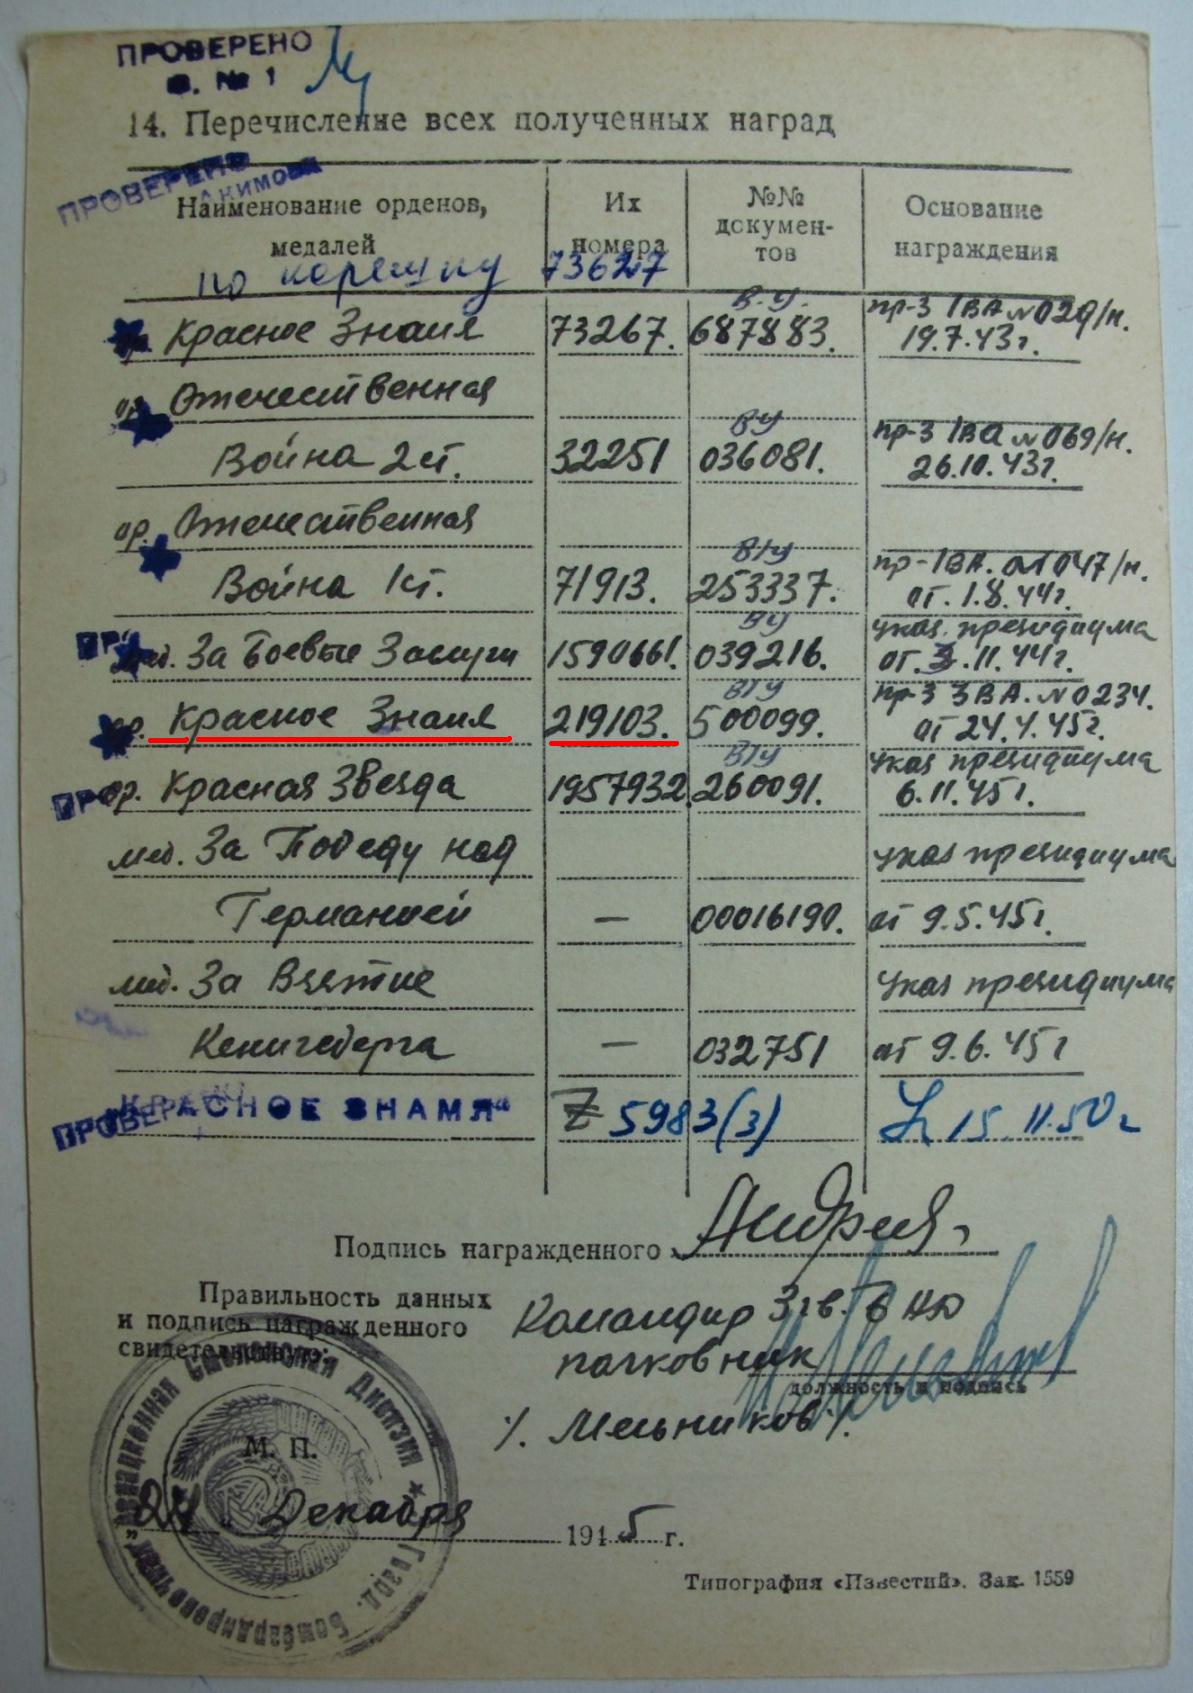 ПРОВЕРЕНО
Ф. № 1
14. Перечисление всех полученных наград
ПРОВЕРЕНО
АКИМОВА
Наименование орденов, медалей | Их номера | №№ документов | Основание награждения
по корешку 73627
ор. Красное Знамя | 73267. | В.У. 687883. | пр-з 1ВА №029/н. 19.7.43г.
ор. Отечественная
Война 2ст. | 32251 | ВУ 036081. | пр-з 1ВА №069/н. 26.10.43г.
ор. Отечественная
Война 1ст. | 71913. | ВУ 253337. | пр-1ВА. №047/н. от. 1.8.44г.
ПР
мед. За Боевые Заслуги | 1590661. | ВУ 039216. | указ. президиума от. 3.11.44г.
ор. Красное Знамя | 219103. | ВУ 500099. | пр-з 3ВА. №0234. от 24.4.45г.
ПРО
ор. Красная Звезда | 1957932. | ВУ 260091. | указ президиума 6.11.45г.
мед. За Победу над | указ президиума
Германией | — | 00016190. | от 9.5.45г.
мед. За Взятие | указ президиума
Кенигсберга | — | 032751 | от 9.6.45г
ПРОВЕРЕНО
„КРАСНОЕ ЗНАМЯ“ | 5983(3) | 15.11.50г
Подпись награжденного
Правильность данных
и подпись награжденного
свидетельствую:
Командир 3 гв. БАД
полковник
должность и подпись
/. Мельников/.
М. П.
„24„ Декабря 1945 г.
Гвард. Бомбардировочная Авиационная Смоленская Дивизия
Типография «Известий». Зак. 1559